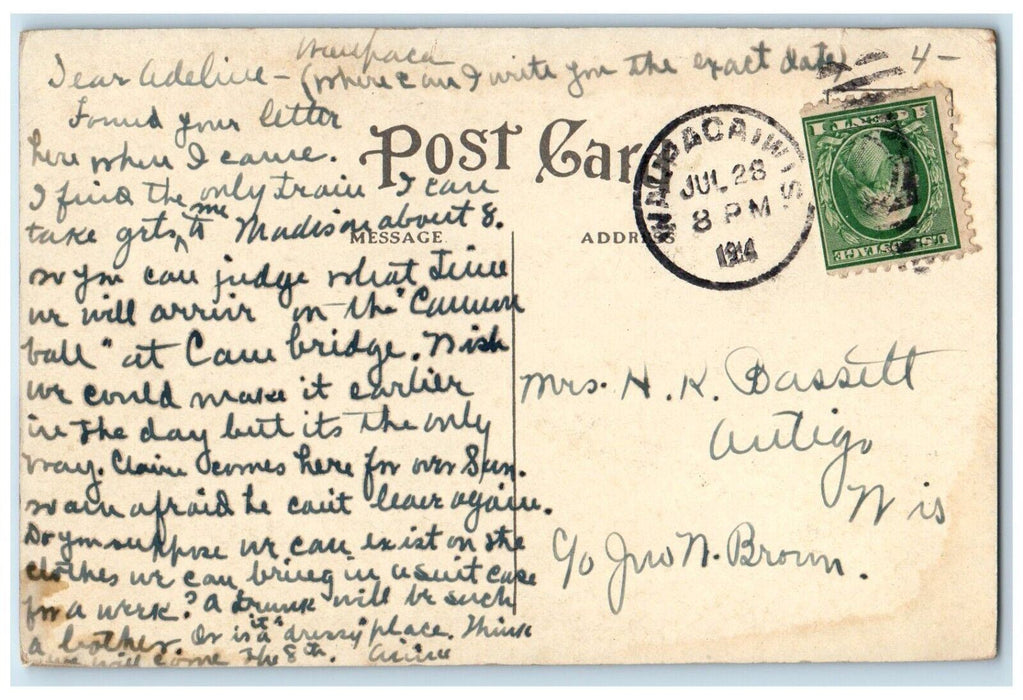 Waupaca
Dear Adeline - (Where can I write you the exact date) 4-
Found your letter
here when I came.
I find the only train I can
take gets me to Madison about 8.
so you can judge what time
we will arrive on the "Cannon
ball" at Cambridge. Wish
we could make it earlier
in the day but its the only
way. Claire comes here for over Sun.
so am afraid he cant leave again.
Do you suppose we can exist on the
clothes we can bring in a suit case
for a week? A trunk will be such
a bother. Or is it a "dressy" place. Think
we will come the 8th.
POST CARD
MESSAGE
ADDRESS
WAUPACA, WIS.
JUL 28
8 PM
1914
U.S. POSTAGE
Mrs. H. K. Bassett
Antigo
Wis
c/o Jno N. Brown.